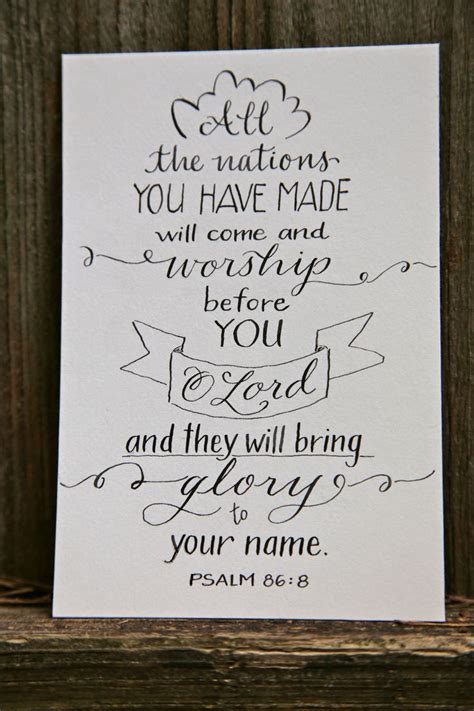 All
the nations
YOU HAVE MADE
will come and
worship
before
YOU
O Lord
and they will bring
glory
to
your name.
PSALM 86:8